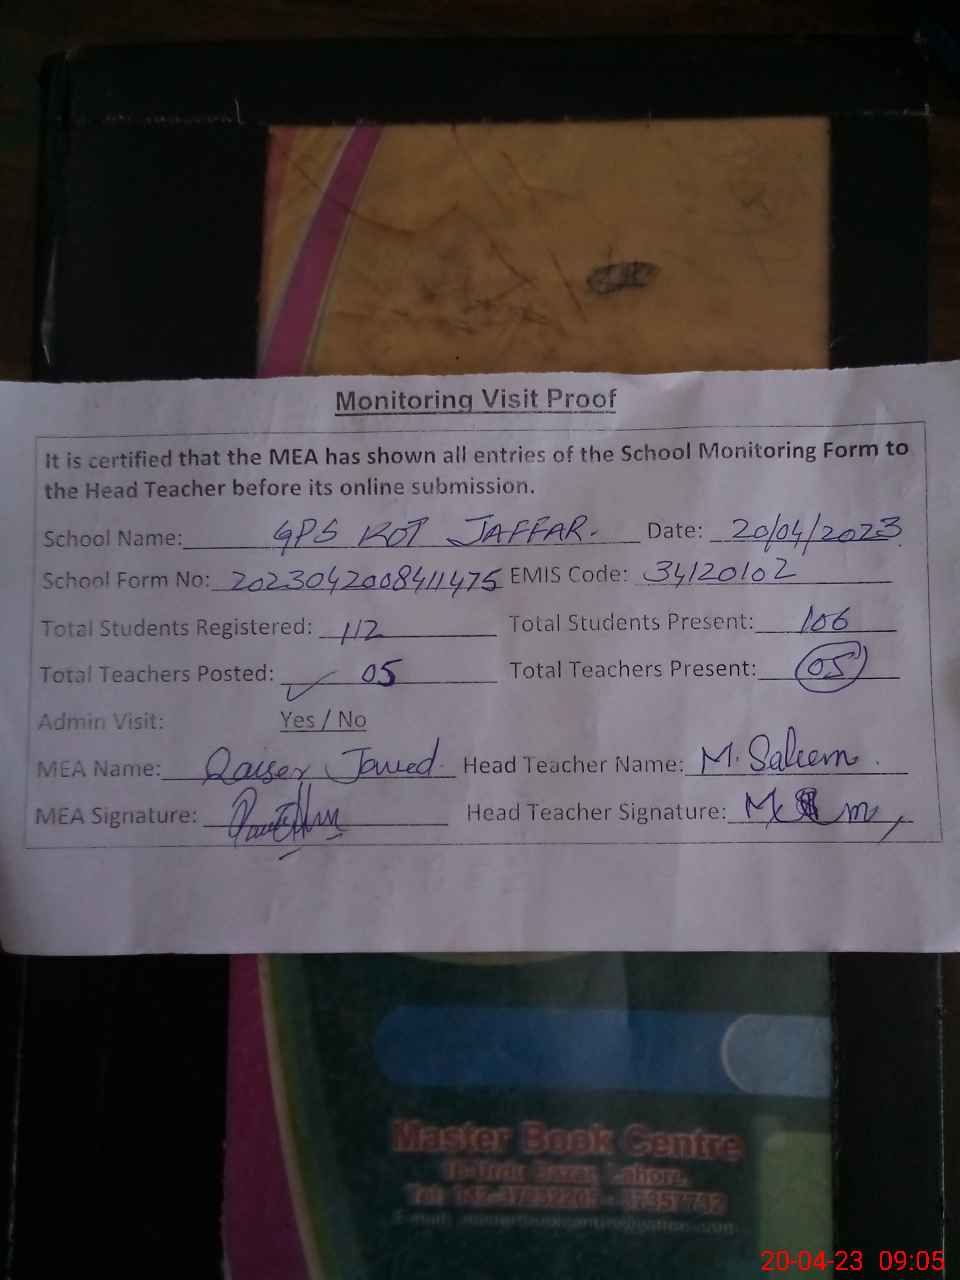 Monitoring Visit Proof
It is certified that the MEA has shown all entries of the School Monitoring Form to
the Head Teacher before its online submission.
School Name: GPS KOT JAFFAR. Date: 20/04/2023
School Form No: 2023042008411475 EMIS Code: 34120102
Total Students Registered: 112 Total Students Present: 106
Total Teachers Posted: ✓ 05 Total Teachers Present: 05
Admin Visit: Yes / No
MEA Name: Qaiser Javed. Head Teacher Name: M. Saleem.
MEA Signature: Head Teacher Signature:
Master Book Centre
Urdu Bazar Lahore.
Tel:
E-mail:
20-04-23 09:05